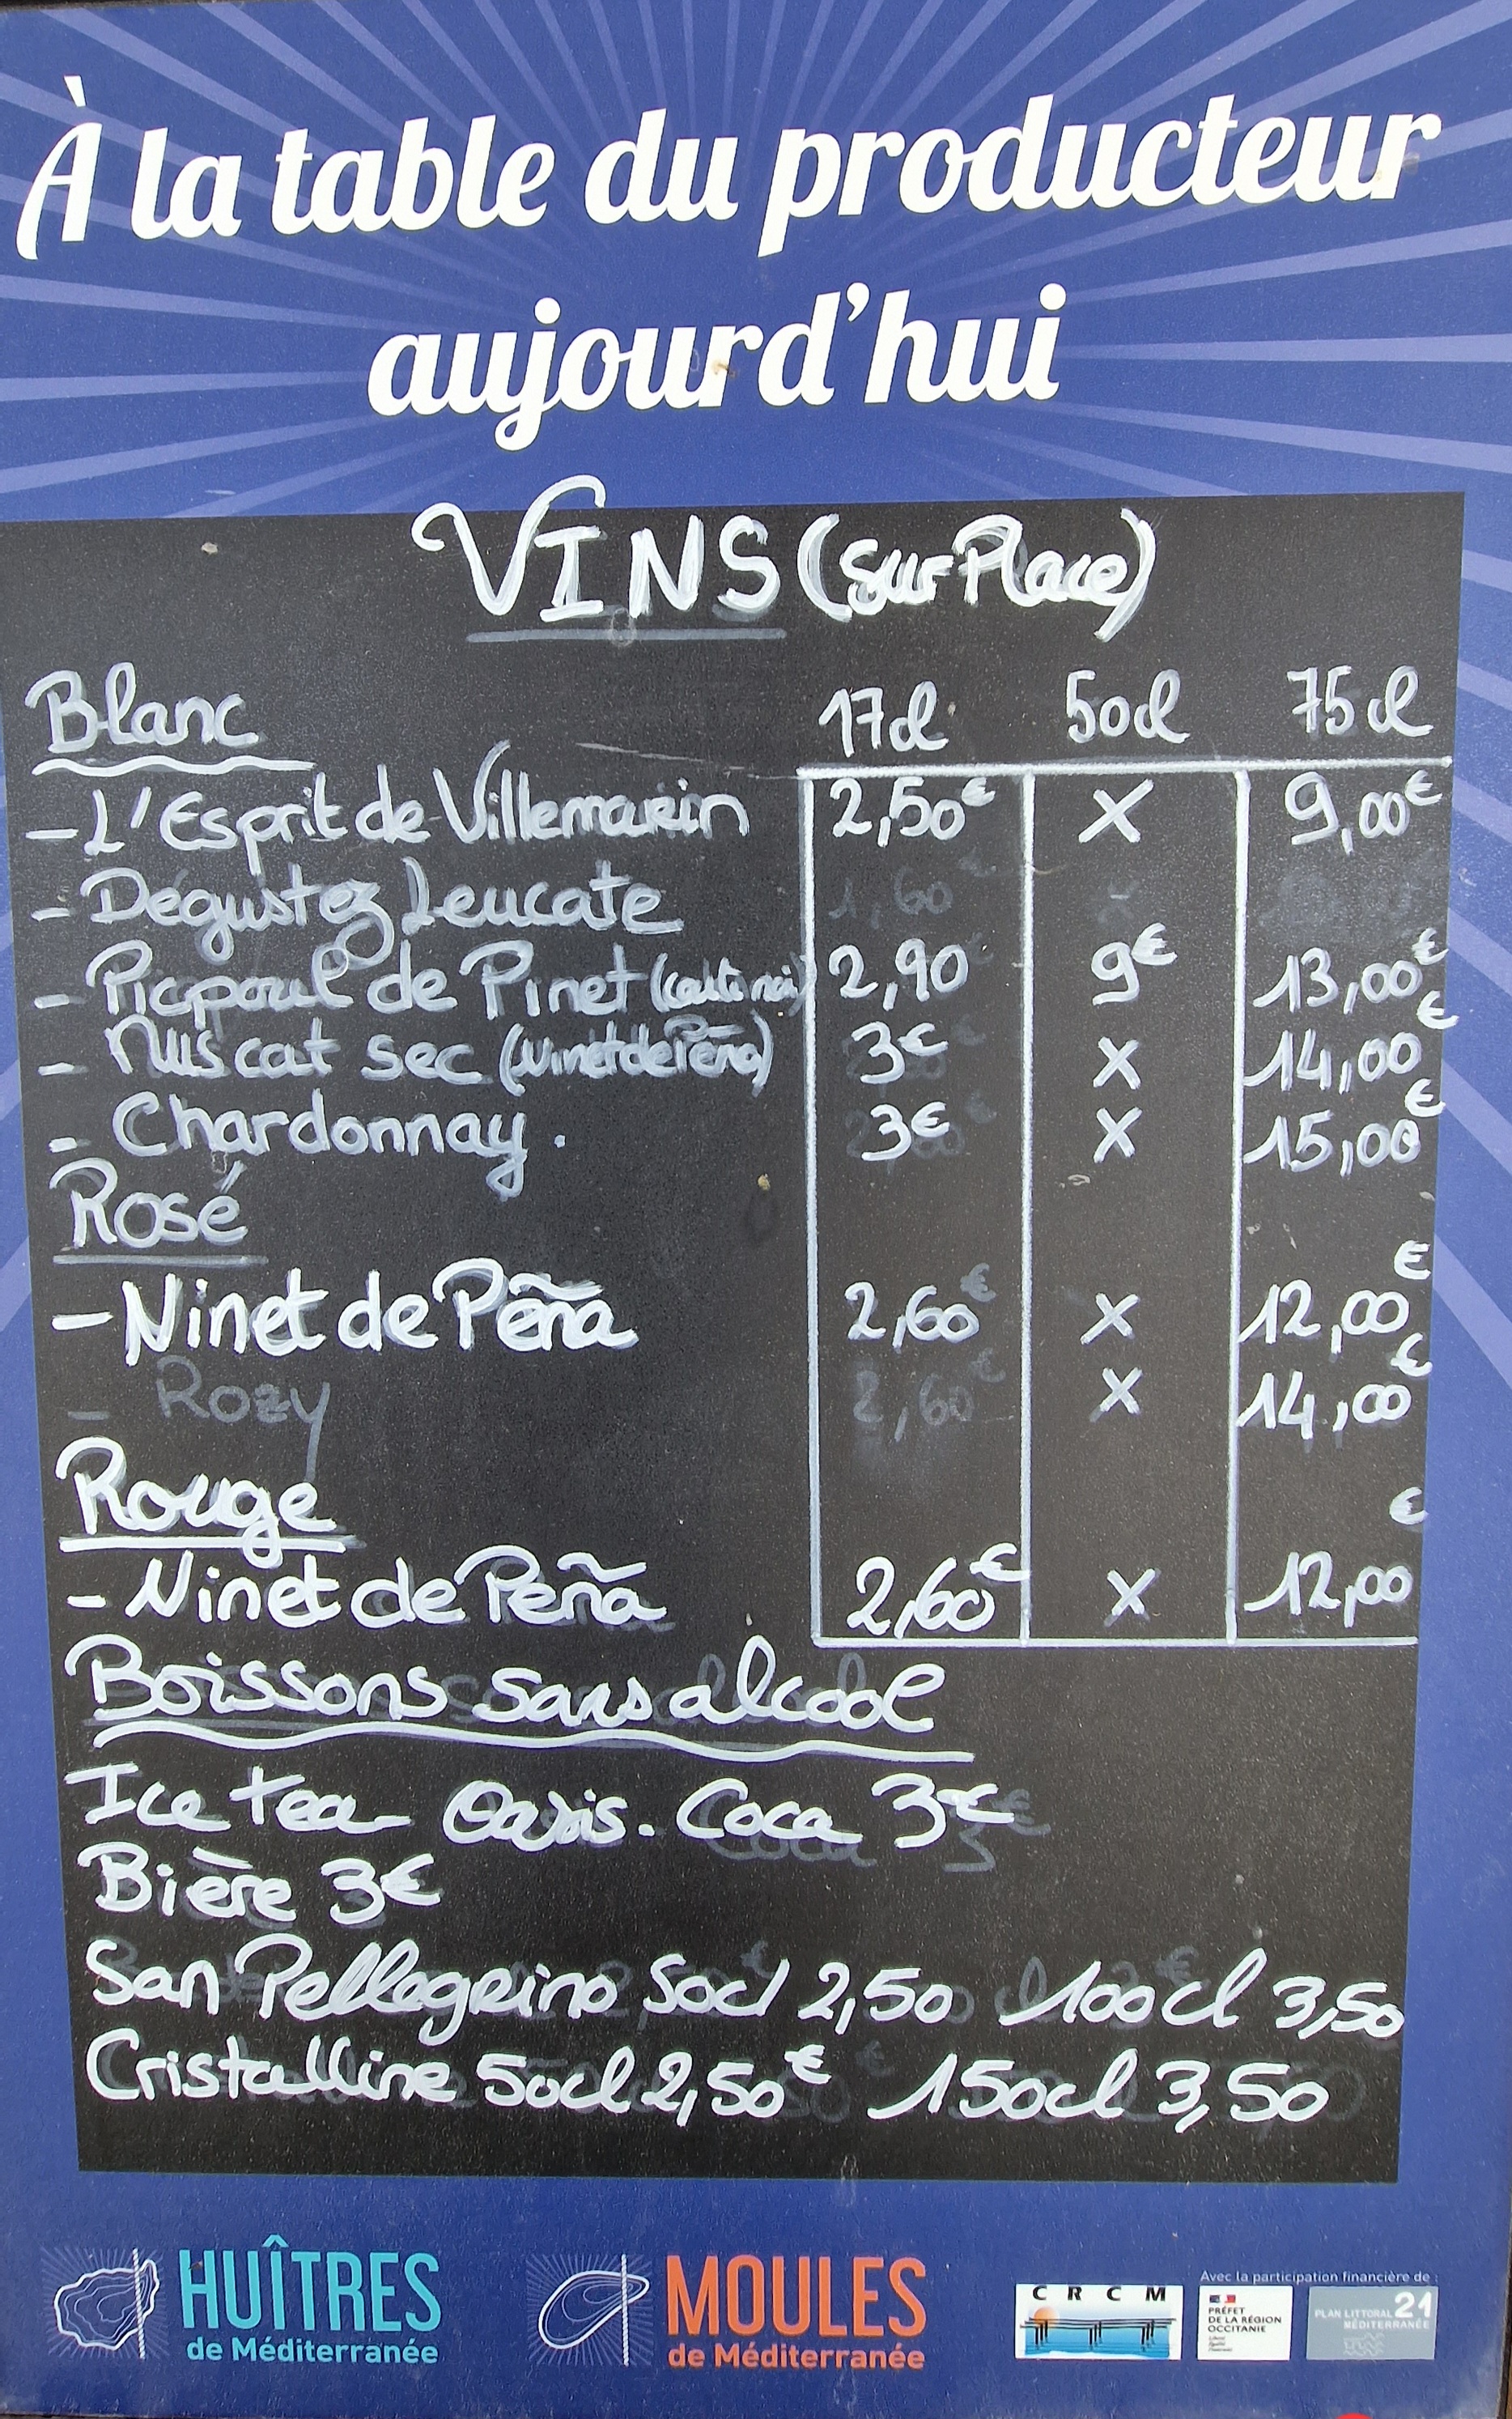 À la table du producteur
aujourd'hui
VINS (sur Place)
Blanc 17cl 50cl 75cl
- L'Esprit de Villemarin 2,50€ X 9,00€
- Dégustez Leucate 1,60
- Picpoul de Pinet 2,90 9€ 13,00€
- Muscat sec (Ninet de Peña) 3€ X 14,00€
- Chardonnay. 3€ X 15,00€
Rosé
- Ninet de Peña 2,60€ X 12,00€
- Rozy 2,60€ X 14,00€
Rouge
- Ninet de Peña 2,60€ X 12,00€
Boissons sans alcool
Ice tea - Oasis. Coca 3€
Bière 3€
San Pellegrino 50cl 2,50 100cl 3,50
Cristalline 50cl 2,50€ 150cl 3,50
HUÎTRES
de Méditerranée
MOULES
de Méditerranée
CRCM
Avec la participation financière de :
PRÉFET
DE LA RÉGION
OCCITANIE
PLAN LITTORAL 21
MÉDITERRANÉE